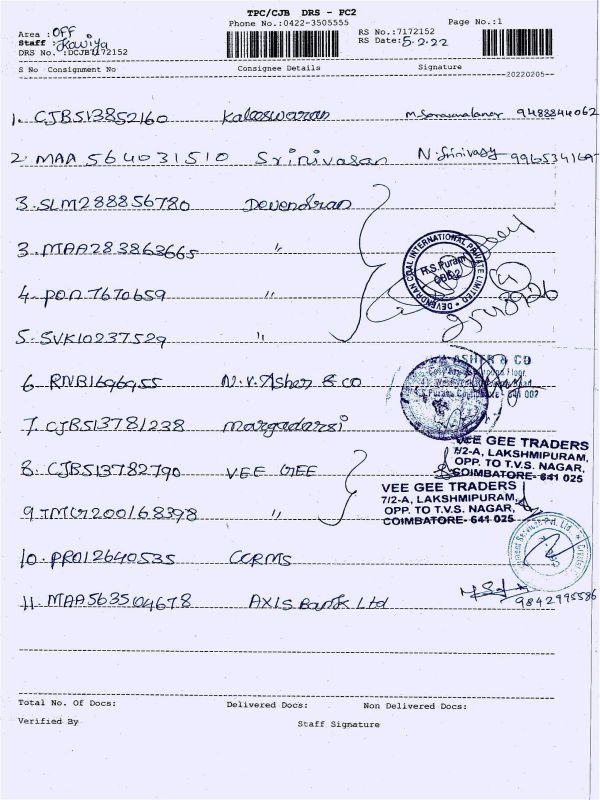 TPC/CJB DRS - PC2
Phone No.:0422-3505555
Page No.:1
Area : OFF
Staff : Kaviya
DRS No. :DCJB7172152
RS No.:7172152
RS Date: 5.2.22
S No Consignment No Consignee Details Signature
20220205
1. CJB513852160 Kaleeswaran 9488844062
2. MAA 564031510 Srinivasan N. Srinivasan
3. SLM288856780 Devendran
3. MAA283863665 "
4. PON7670659 "
5. SVK10237529 "
DEVENDRAN COAL INTERNATIONAL PRIVATE LIMITED
R.S.Puram
CBE-2
6. RNB1696955 N.V. Asher & co
ASHER & CO
641 002
7. CJB513781238 margadarsi
8. CJB513782790 VEE GEE
VEE GEE TRADERS
7/2-A, LAKSHMIPURAM,
OPP. TO T.V.S. NAGAR,
COIMBATORE- 641 025
VEE GEE TRADERS
7/2-A, LAKSHMIPURAM,
OPP. TO T.V.S. NAGAR,
COIMBATORE- 641 025
9. TMC1200168398 "
10. PRO12640535 CCRMS
11. MAA563504678 AXIS Bank Ltd
9842995586
Total No. Of Docs: Delivered Docs: Non Delivered Docs:
Verified By Staff Signature